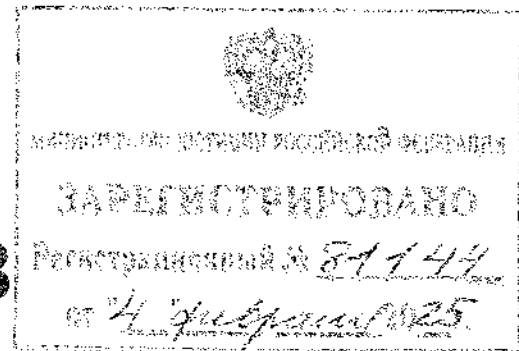 МИНИСТЕРСТВО ЮСТИЦИИ РОССИЙСКОЙ ФЕДЕРАЦИИ
ЗАРЕГИСТРИРОВАНО
Регистрационный № 81144
от "4" февраля 2025.